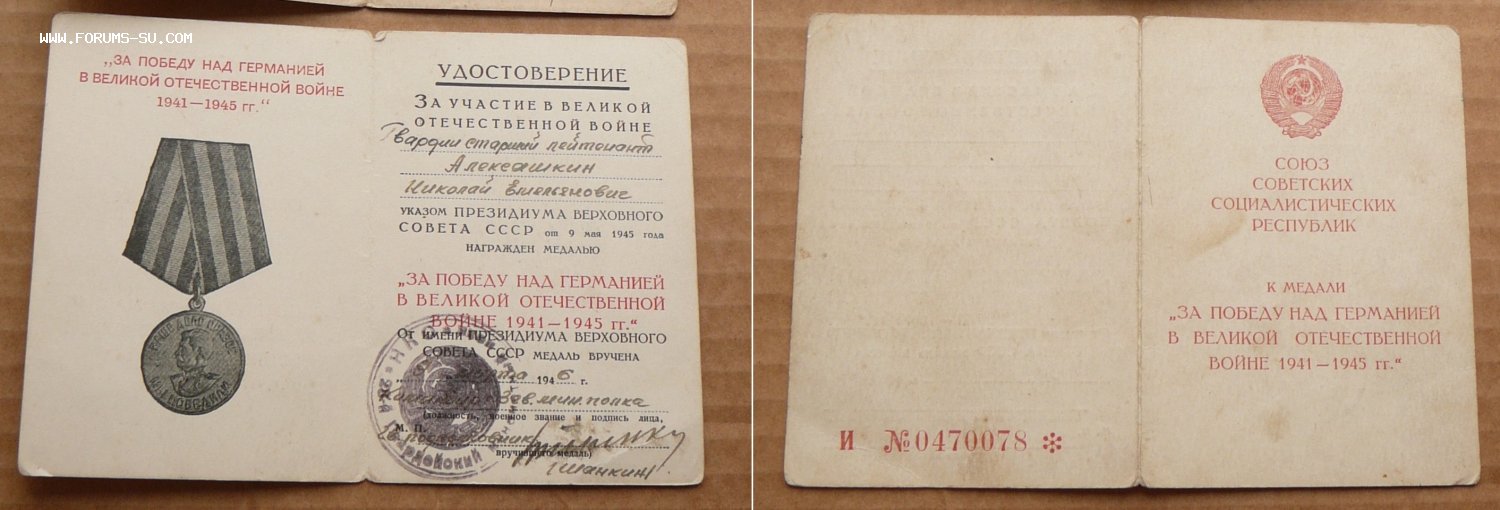 www.FORUMS-SU.COM
„ЗА ПОБЕДУ НАД ГЕРМАНИЕЙ
В ВЕЛИКОЙ ОТЕЧЕСТВЕННОЙ ВОЙНЕ
1941—1945 гг.“
УДОСТОВЕРЕНИЕ
ЗА УЧАСТИЕ В ВЕЛИКОЙ
ОТЕЧЕСТВЕННОЙ ВОЙНЕ
Гвардии старший лейтенант
Алексашкин
Николай Емельянович
УКАЗОМ ПРЕЗИДИУМА ВЕРХОВНОГО
СОВЕТА СССР от 9 мая 1945 года
НАГРАЖДЕН МЕДАЛЬЮ
„ЗА ПОБЕДУ НАД ГЕРМАНИЕЙ
В ВЕЛИКОЙ ОТЕЧЕСТВЕННОЙ
ВОЙНЕ 1941—1945 гг.“
От ИМЕНИ ПРЕЗИДИУМА ВЕРХОВНОГО
СОВЕТА СССР МЕДАЛЬ ВРУЧЕНА
марта 1946 г.
мин.полка
(должность, военное звание и подпись лица,
М. П.
подполковник
вручившего медаль)
СОЮЗ
СОВЕТСКИХ
СОЦИАЛИСТИЧЕСКИХ
РЕСПУБЛИК
К МЕДАЛИ
„ЗА ПОБЕДУ НАД ГЕРМАНИЕЙ
В ВЕЛИКОЙ ОТЕЧЕСТВЕННОЙ
ВОЙНЕ 1941—1945 гг.“
И №0470078 ✻